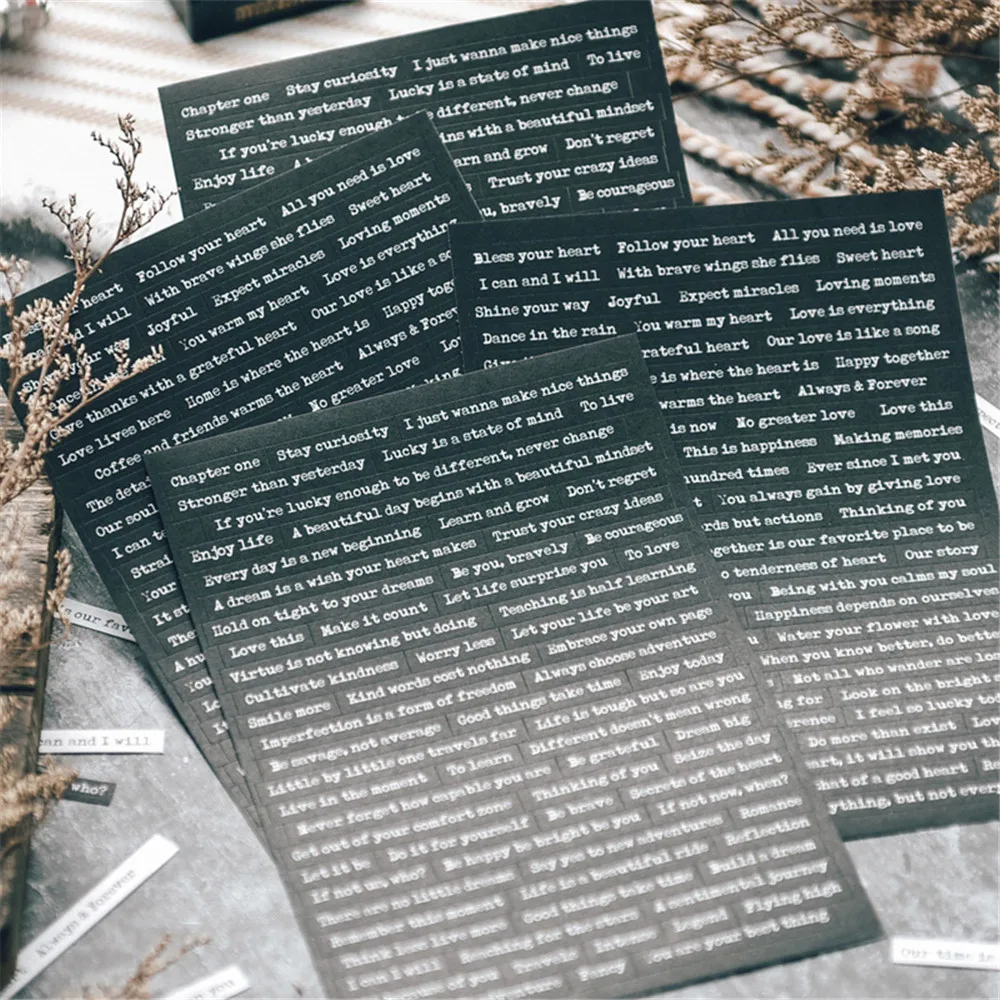 Chapter one Stay curiosity I just wanna make nice things
Stronger than yesterday Lucky is a state of mind To live
If you're lucky enough to be different, never change
Enjoy life with a beautiful mindset
Learn and grow Don't regret
Trust your crazy ideas
bravely Be courageous
heart Follow your heart All you need is love
and I will With brave wings she flies Sweet heart
way Joyful Expect miracles Loving moments
You warm my heart Love is everything
Give thanks with a grateful heart Our love is like a
Love lives here Home is where the heart is Happy
Coffee and friends warms the heart Always &
The No greater love
Our soul
I can
Bless your heart Follow your heart All you need is love
I can and I will With brave wings she flies Sweet heart
Shine your way Joyful Expect miracles Loving moments
Dance in the rain You warm my heart Love is everything
grateful heart Our love is like a song
is where the heart is Happy together
warms the heart Always & Forever
is now No greater love Love this
This is happiness Making memories
hundred times Ever since I met you
You always gain by giving love
but actions Thinking of you
is our favorite place to be
tenderness of heart Our story
you Being with you calms my soul
Happiness depends on ourselves
Water your flower with love
When you know better, do better
Not all who wander are
for Look on the bright
I feel so lucky to
Do more than exist
it will show you
of a good heart
but not
Chapter one Stay curiosity I just wanna make nice things
Stronger than yesterday Lucky is a state of mind To live
If you're lucky enough to be different, never change
Enjoy life A beautiful day begins with a beautiful mindset
Every day is a new beginning Learn and grow Don't regret
A dream is a wish your heart makes Trust your crazy ideas
Hold on tight to your dreams Be you, bravely Be courageous
Love this Make it count Let life surprise you To love
Virtue is not knowing but doing Teaching is half learning
Cultivate kindness Worry less Let your life be your art
Smile more Kind words cost nothing Embrace your own page
Imperfection is a form of freedom Always choose adventure
Be savage, not average Good things take time Enjoy today
Little by little one travels far Life is tough but so are you
Live in the moment To learn Different doesn't mean wrong
Never forget how capable you are Be grateful Dream big
Get out of your comfort zone Thinking of you Seize the day
Let it be Do it for yourself Be brave Secrets of the heart
If not us, who? Be happy be bright be you If not now, when?
There are no little dreams Say yes to new adventures Romance
Remember this moment Life is a beautiful ride Reflection
Think less live more Good things take time Build a dream
I can I will Reaching for the stars A sentimental journey
of you Travels Intense Legend Flying high
Fancy You are your best thing
can and I will
who?
Always & Forever
you
Our time is